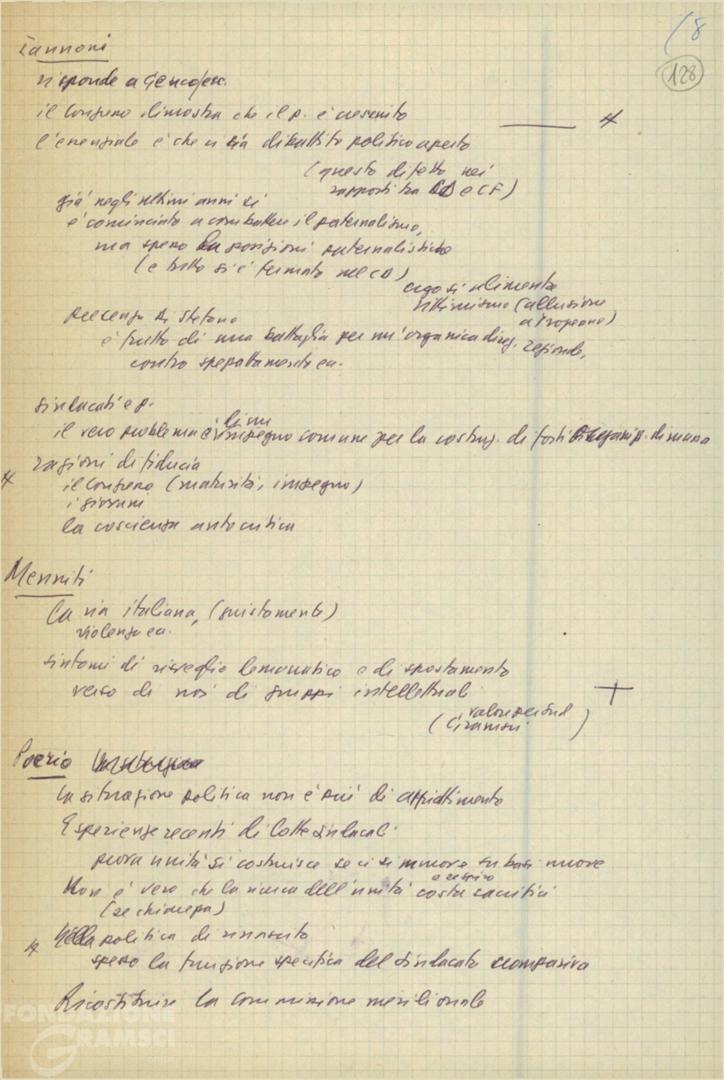 (8
128
Iannoni
risponde a
il Congresso dimostra che il p. è cresciuto
l'essenziale è che ci sia dibattito politico aperto
(questo difetto nei
rapporti tra CD e CF)
già negli ultimi anni si
è cominciato a combattere il paternalismo,
ma spesso posizioni paternalistiche
(e tutto si è fermato nel CD)
si alimenta
vittimismo (allusione
a Tropeano)
presenza De Stefano
è frutto di una battaglia per un'organica direz. regionale,
contro
sindacati e p.
il vero problema è impegno comune per la costruz. di forti di massa
ragioni di fiducia
il Congresso (maturità, impegno)
i giovani
la coscienza autocritica
Menniti
la via italiana, (giustamente)
violenza ecc.
sintomi di risveglio democratico e di spostamento
verso di noi di gruppi intellettuali
(valore per Sud
Gramsci)
Poerio
la situazione politica non è più di appiattimento
Esperienze recenti di lotte sindacali
nuova unità si costruisce se ci si muove su basi nuove
Non è vero che la ricerca dell'unità costa sacrifici
Nella politica di rinnovamento
spesso la funzione specifica del sindacato scompariva
Ricostituire la commissione meridionale
FONDAZIONE
GRAMSCI